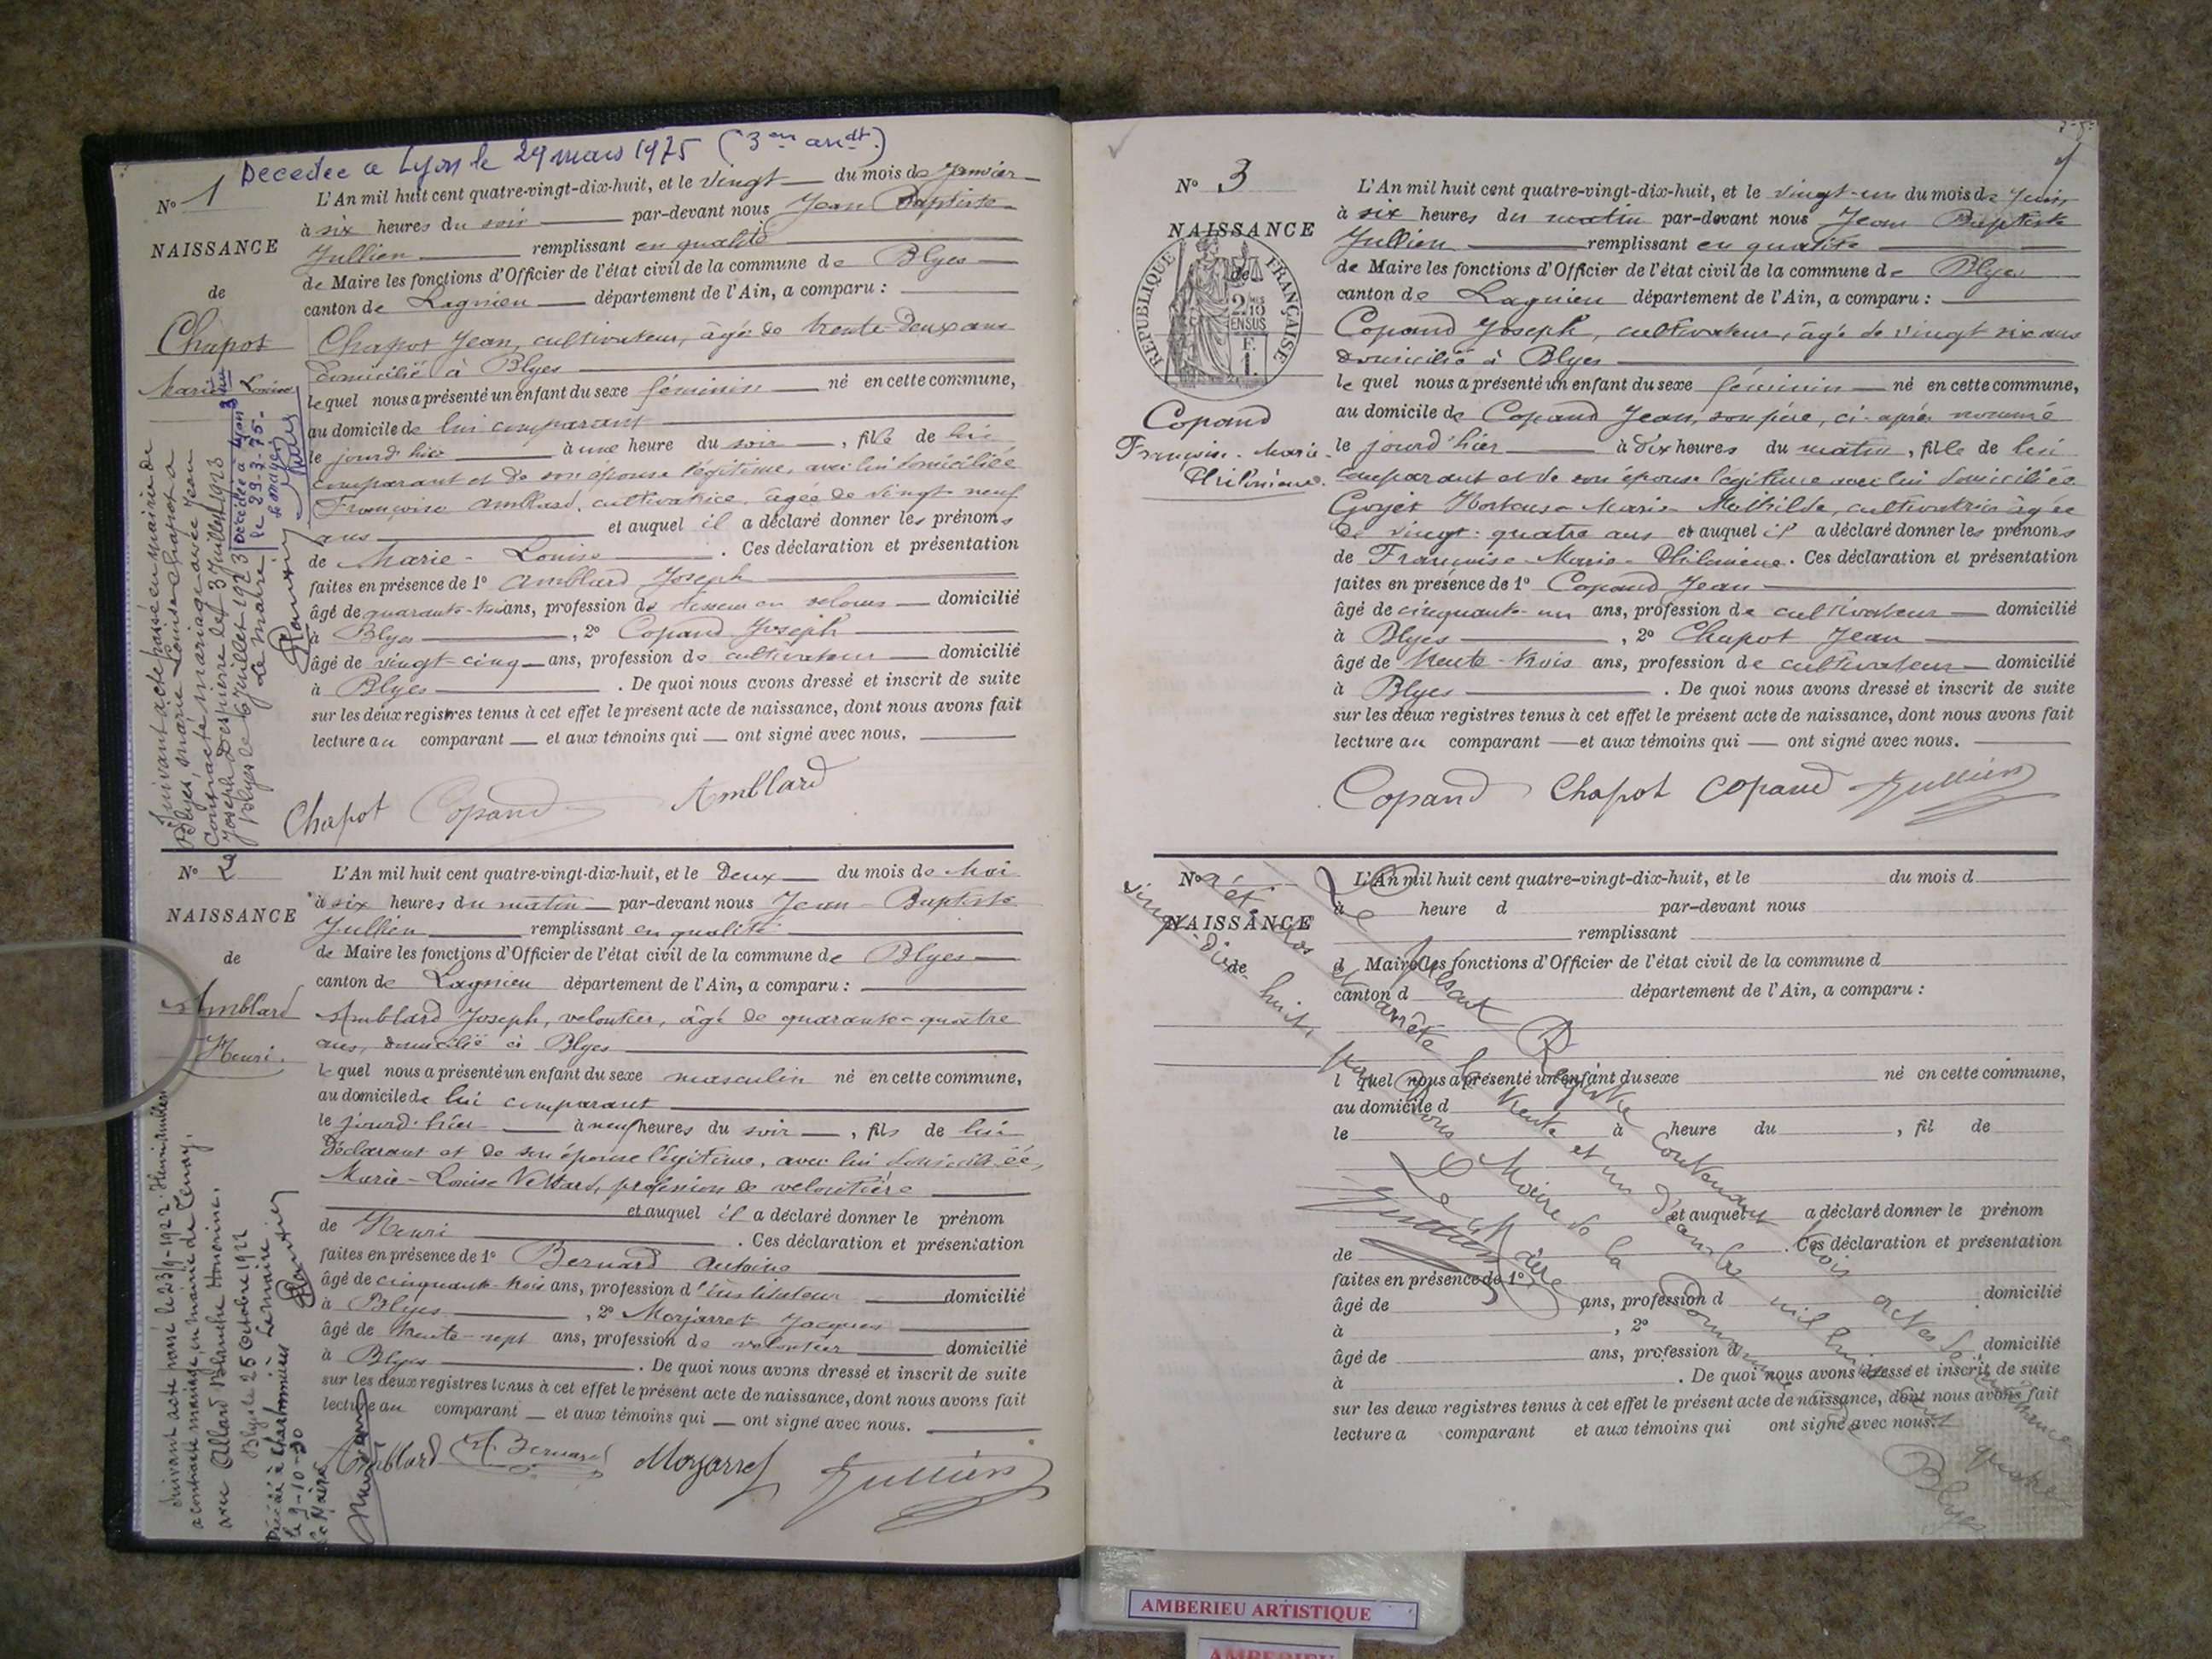 Decedee a Lyon le 29 mars 1975 (3em arrdt.)
N° 1
NAISSANCE
de
Chapot
Marie Louise
L'An mil huit cent quatre-vingt-dix-huit, et le vingt du mois de Janvier
à six heures du soir par-devant nous Jean Baptiste
Jullien remplissant en qualité
de Maire les fonctions d'Officier de l'état civil de la commune de Blyes
canton de Lagnieu département de l'Ain, a comparu :
Chapot Jean, cultivateur, âgé de trente-deux ans
domicilié à Blyes
lequel nous a présenté un enfant du sexe féminin né en cette commune,
au domicile de lui comparant
le jourd'hier à une heure du soir, fille de lui
comparant et de son épouse légitime, avec lui domiciliée
Françoise Amblard, cultivatrice, âgée de vingt-neuf
ans et auquel il a déclaré donner les prénoms
de Marie-Louise. Ces déclaration et présentation
faites en présence de 1° Amblard Joseph
âgé de quarante-trois ans, profession de tisseur en velours domicilié
à Blyes, 2° Copand Joseph
âgé de vingt-cinq ans, profession de cultivateur domicilié
à Blyes. De quoi nous avons dressé et inscrit de suite
sur les deux registres tenus à cet effet le présent acte de naissance, dont nous avons fait
lecture au comparant et aux témoins qui ont signé avec nous.
Chapot Copand Amblard
Suivant acte passé en mairie de
Blyes, Marie Louise Chapot a
contracté mariage avec Jean
Joseph Despierre le 3 Juillet 1923
Blyes le 6 Juillet 1923
Le maire
Décédée à Lyon 3em
le 29-3-75.
N° 2
NAISSANCE
de
Amblard
Henri.
L'An mil huit cent quatre-vingt-dix-huit, et le deux du mois de Mai
à six heures du matin par-devant nous Jean-Baptiste
Jullien remplissant en qualité
de Maire les fonctions d'Officier de l'état civil de la commune de Blyes
canton de Lagnieu département de l'Ain, a comparu :
Amblard Joseph, veloutier, âgé de quarante-quatre
ans, domicilié à Blyes
lequel nous a présenté un enfant du sexe masculin né en cette commune,
au domicile de lui comparant
le jourd'hier à neuf heures du soir, fils de lui
déclarant et de son épouse légitime, avec lui domiciliée,
Marie-Louise profession de veloutière
et auquel il a déclaré donner le prénom
de Henri. Ces déclaration et présentation
faites en présence de 1° Bernard Antoine
âgé de cinquante-trois ans, profession d'instituteur domicilié
à Blyes, 2° Morjarret Jacques
âgé de trente-sept ans, profession de veloutier domicilié
à Blyes. De quoi nous avons dressé et inscrit de suite
sur les deux registres tenus à cet effet le présent acte de naissance, dont nous avons fait
lecture au comparant et aux témoins qui ont signé avec nous.
Amblard A. Bernard Morjarret Jullien
Suivant acte passé le 23/9-1922
a contracté mariage, en mairie de Tenay,
avec Allard Blanche Honorine.
Blyes le 25 octobre 1922
Le maire
le 9-10-30
Le Maire
N° 3
NAISSANCE
de
REPUBLIQUE FRANÇAISE
Copand
Françoise-Marie-
Philomène.
L'An mil huit cent quatre-vingt-dix-huit, et le vingt-un du mois de Juin
à six heures du matin par-devant nous Jean Baptiste
Jullien remplissant en qualité
de Maire les fonctions d'Officier de l'état civil de la commune de Blyes
canton de Lagnieu département de l'Ain, a comparu :
Copand Joseph, cultivateur, âgé de vingt six ans
domicilié à Blyes
lequel nous a présenté un enfant du sexe féminin né en cette commune,
au domicile de Copand Jean, son père, ci-après nommé
le jourd'hier à dix heures du matin, fille de lui
comparant et de son épouse légitime avec lui domiciliée
Goyet Hortense Marie Mathilde, cultivatrice âgée
de vingt-quatre ans et auquel il a déclaré donner les prénoms
de Françoise-Marie-Philomène. Ces déclaration et présentation
faites en présence de 1° Copand Jean
âgé de cinquante-un ans, profession de cultivateur domicilié
à Blyes, 2° Chapot Jean
âgé de trente-trois ans, profession de cultivateur domicilié
à Blyes. De quoi nous avons dressé et inscrit de suite
sur les deux registres tenus à cet effet le présent acte de naissance, dont nous avons fait
lecture au comparant et aux témoins qui ont signé avec nous.
Copand Chapot Copand Jullien
N°
NAISSANCE
de
L'An mil huit cent quatre-vingt-dix-huit, et le du mois d
à heure d par-devant nous
remplissant
d Maire les fonctions d'Officier de l'état civil de la commune d
canton d département de l'Ain, a comparu :
l quel nous a présenté un enfant du sexe né en cette commune,
au domicile d
le à heure du , fil de
et auquel a déclaré donner le prénom
de . Ces déclaration et présentation
faites en présence de 1°
âgé de ans, profession d domicilié
à , 2°
âgé de ans, profession d domicilié
à . De quoi nous avons dressé et inscrit de suite
sur les deux registres tenus à cet effet le présent acte de naissance, dont nous avons fait
lecture a comparant et aux témoins qui ont signé avec nous.
Le présent Registre contenant trois actes de naissance
a été clos et arrêté le trente et un décembre mil huit cent quatre
vingt-dix-huit par Nous Maire de la commune de Blyes
Le Maire
Jullien
AMBERIEU ARTISTIQUE
AMBERIEU